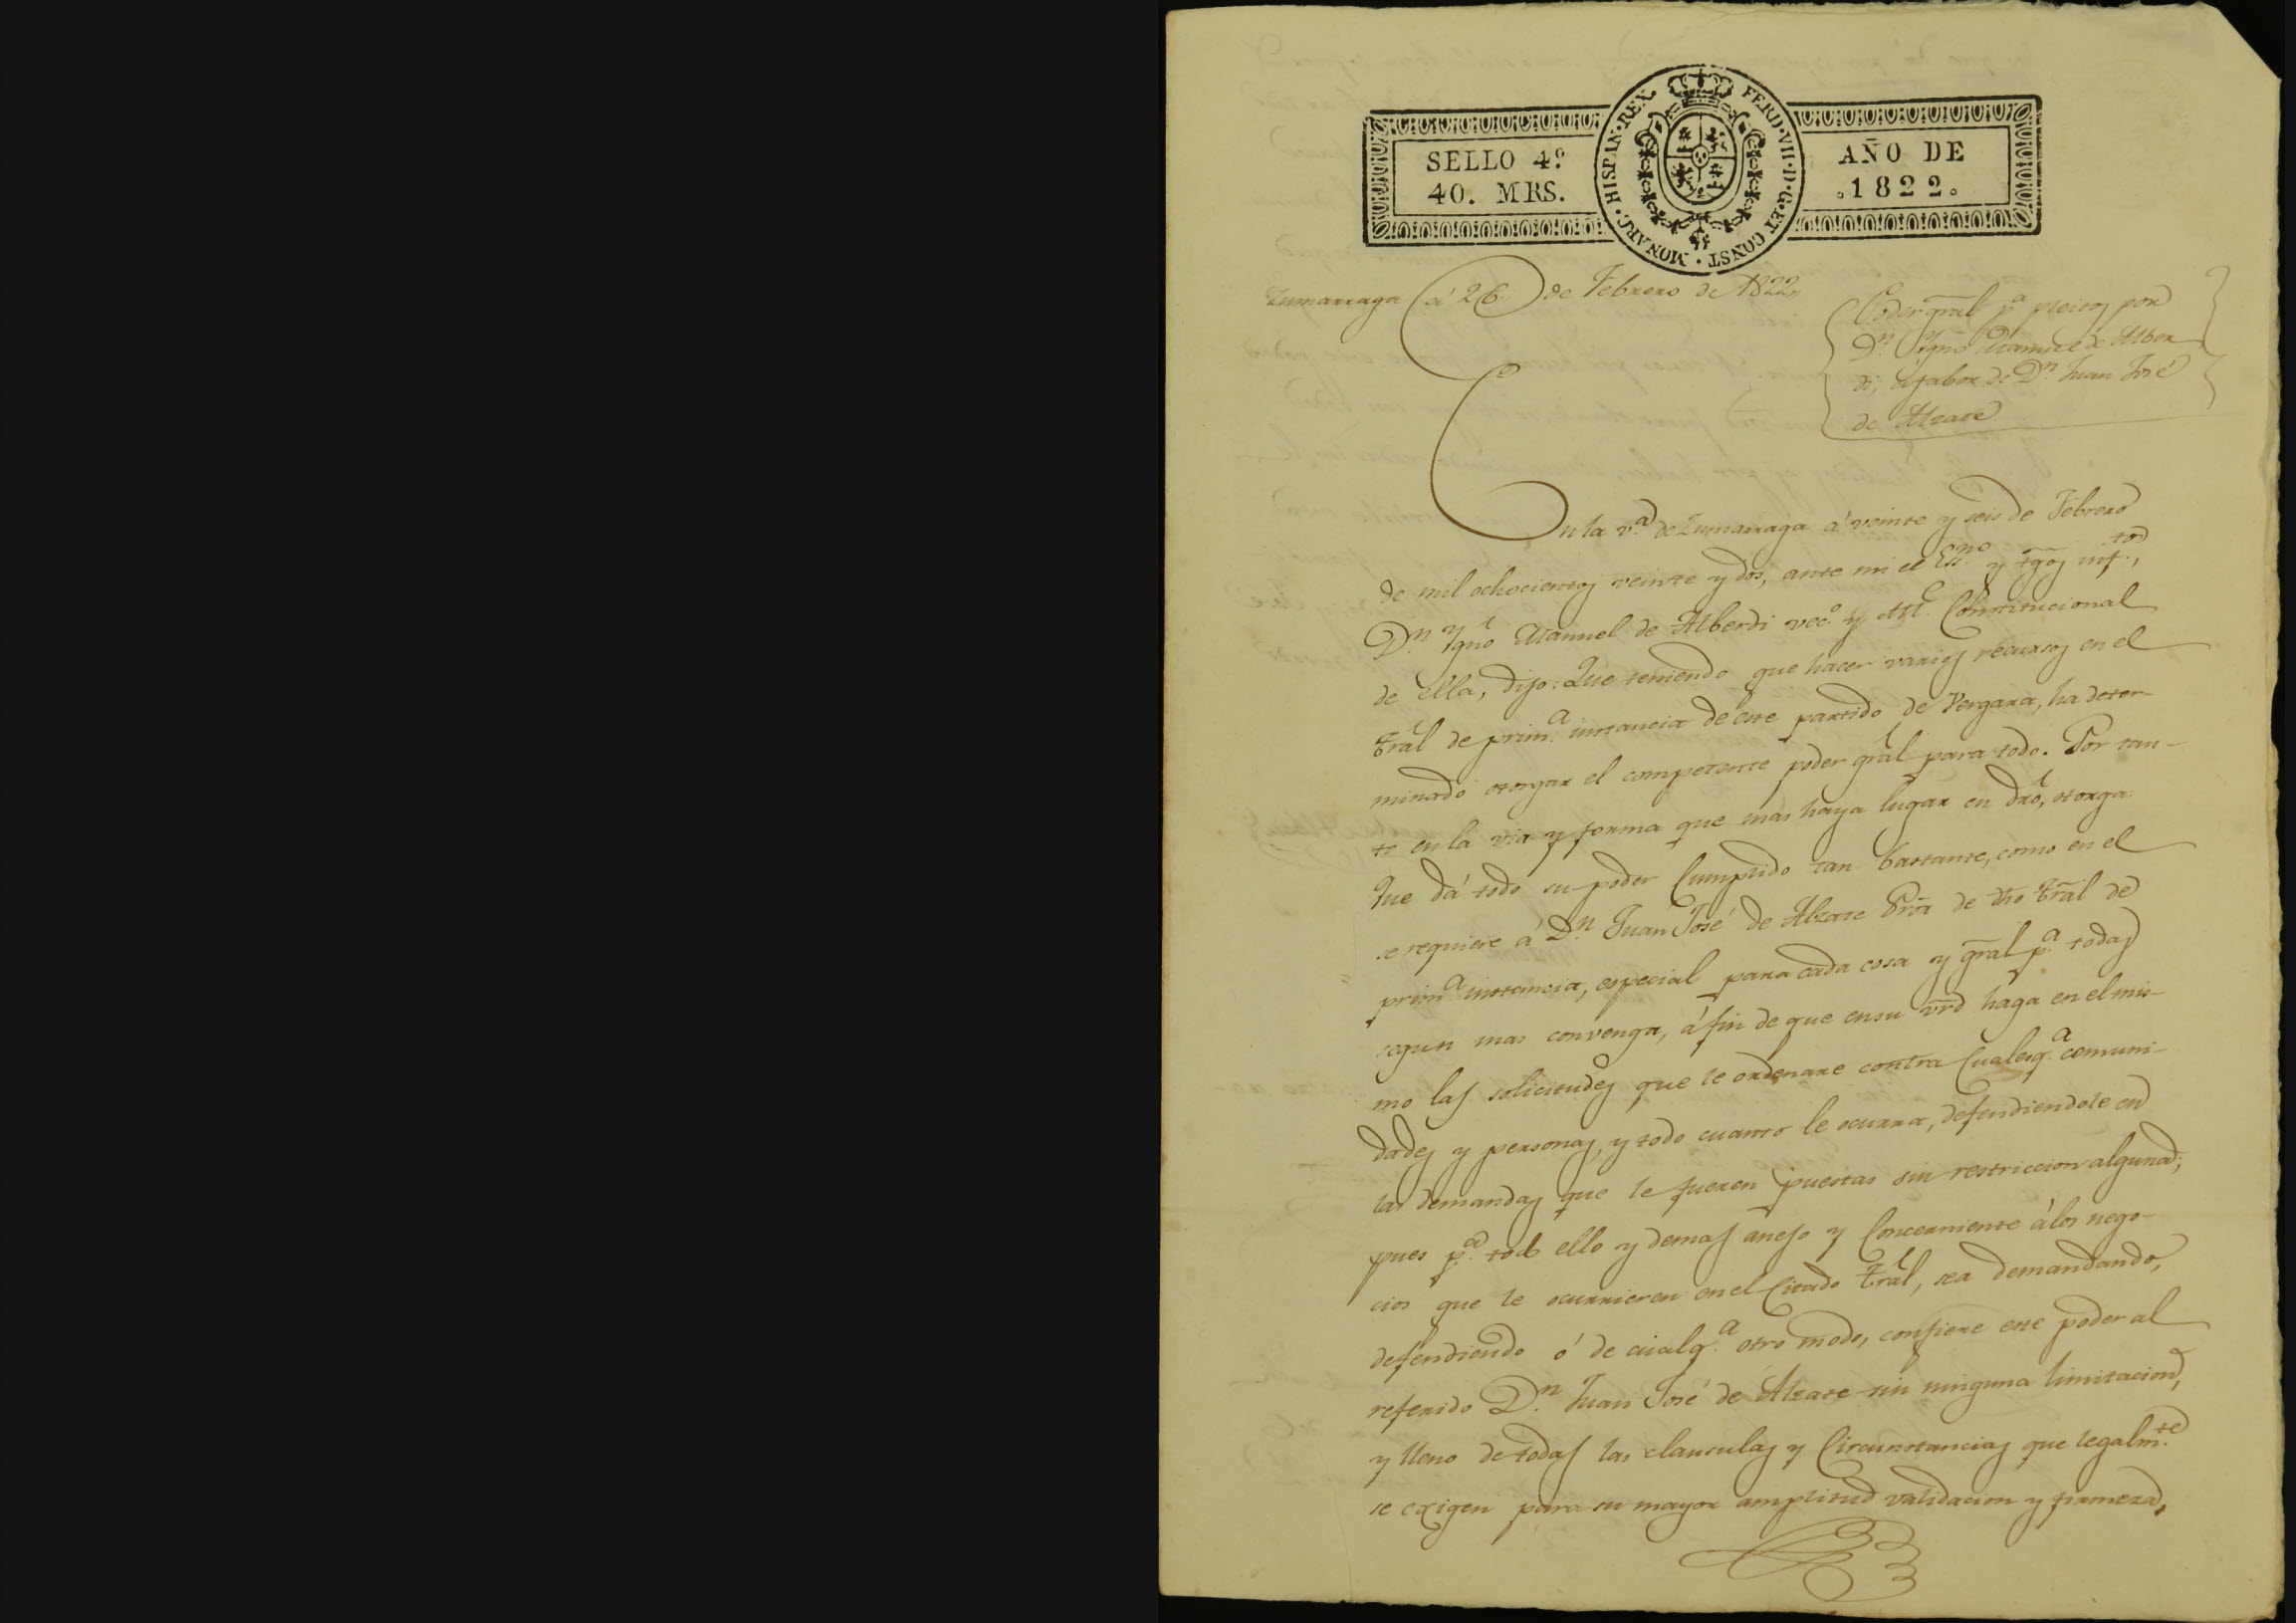 SELLO 4º
40. MRS.
HISPAN·REX· FERD·VII·D·G·ET CONST· MONARC·
AÑO DE
1822
Zumarraga à 26 de Febrero de 1822
Poder gral pª pleitos por
Dn. Ygnº Manuel de Alber
di, à fabor de Dn. Juan José
de Alzate
En la vª. de Zumarraga à veinte y seis de Febrero
de mil ochocientos veinte y dos, ante mi el Esno. y tgos inftos.,
Dn. Ygnº Manuel de Alberdi vecº. y Alle. Constitucional
de ella, dijo: Que teniendo que hacer varios recursos en el
tral de primª. instancia de este partido de Vergara, ha deter-
minado otorgar el competente poder gral para todo. Por tan-
to en la via y forma que mas haya lugar en dro, otorga
Que dá todo su poder Cumplido tan bastante, como en el
se requiere á Dn. Juan José de Alzate Pror de dho tral de
primª. instancia, especial para cada cosa y gral pª. todas
segun mas convenga, á fin de que en su vrd haga en el mis-
mo las solicitudes que le ordenare contra Cualesqª. comuni-
dades y personas, y todo cuanto le ocurra, defendiendole en
las demandas que le fueren puestas sin restriccion alguna;
pues pª. todo ello y demas anejo y Concerniente á los nego-
cios que le ocurrieren en el Citado tral, sea demandando,
defendiendo ó de cualqª. otro modo, confiere este poder al
referido Dn. Juan José de Alzate sin ninguna limitacion,
y lleno de todas las clausulas y Circunstancias que legalmte.
se exigen para su mayor amplitud validacion y firmeza,